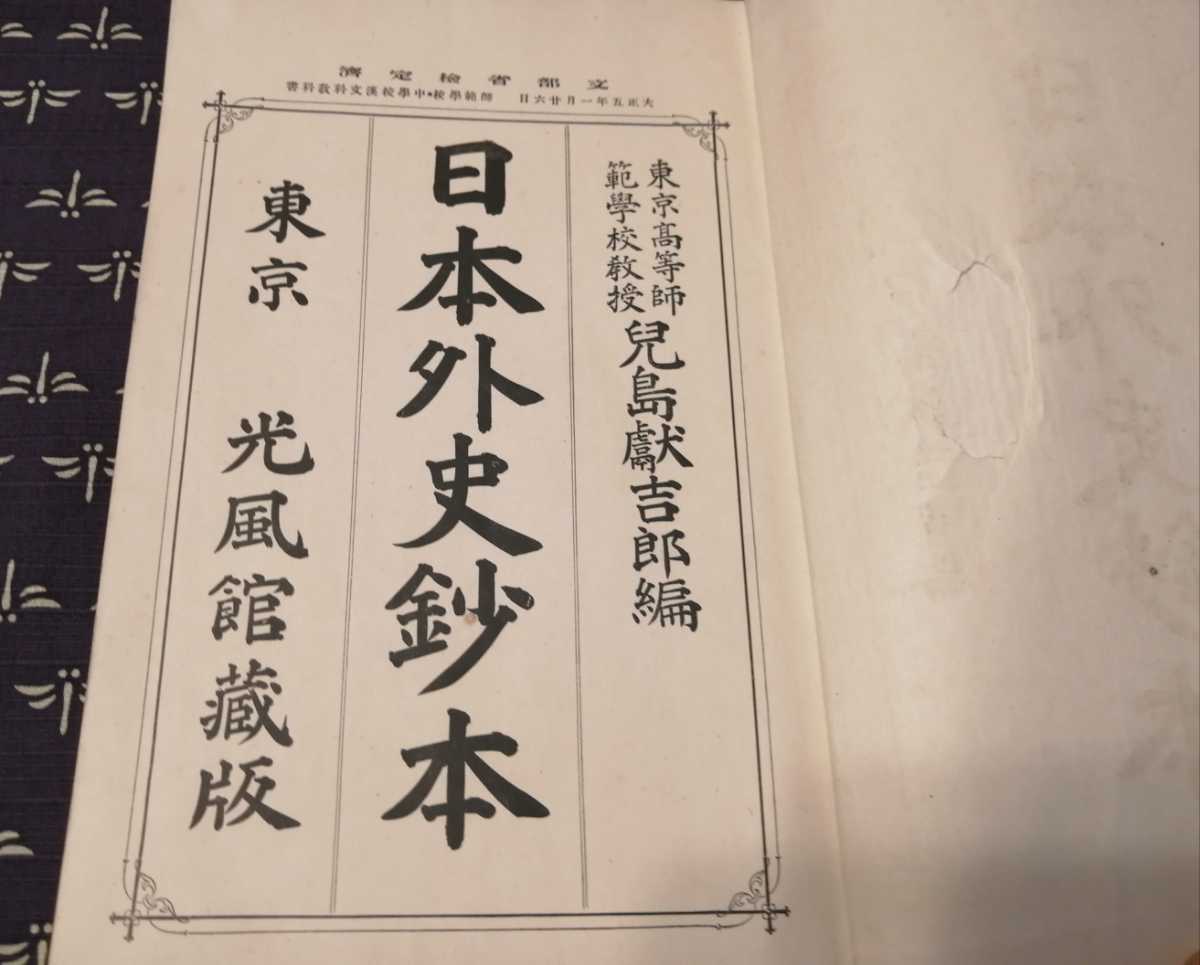 文部省檢定濟
大正五年一月廿六日 師範學校・中學校漢文科敎科書
東京高等師
範學校敎授
兒島獻吉郎編
日本外史鈔本
東京 光風館藏版